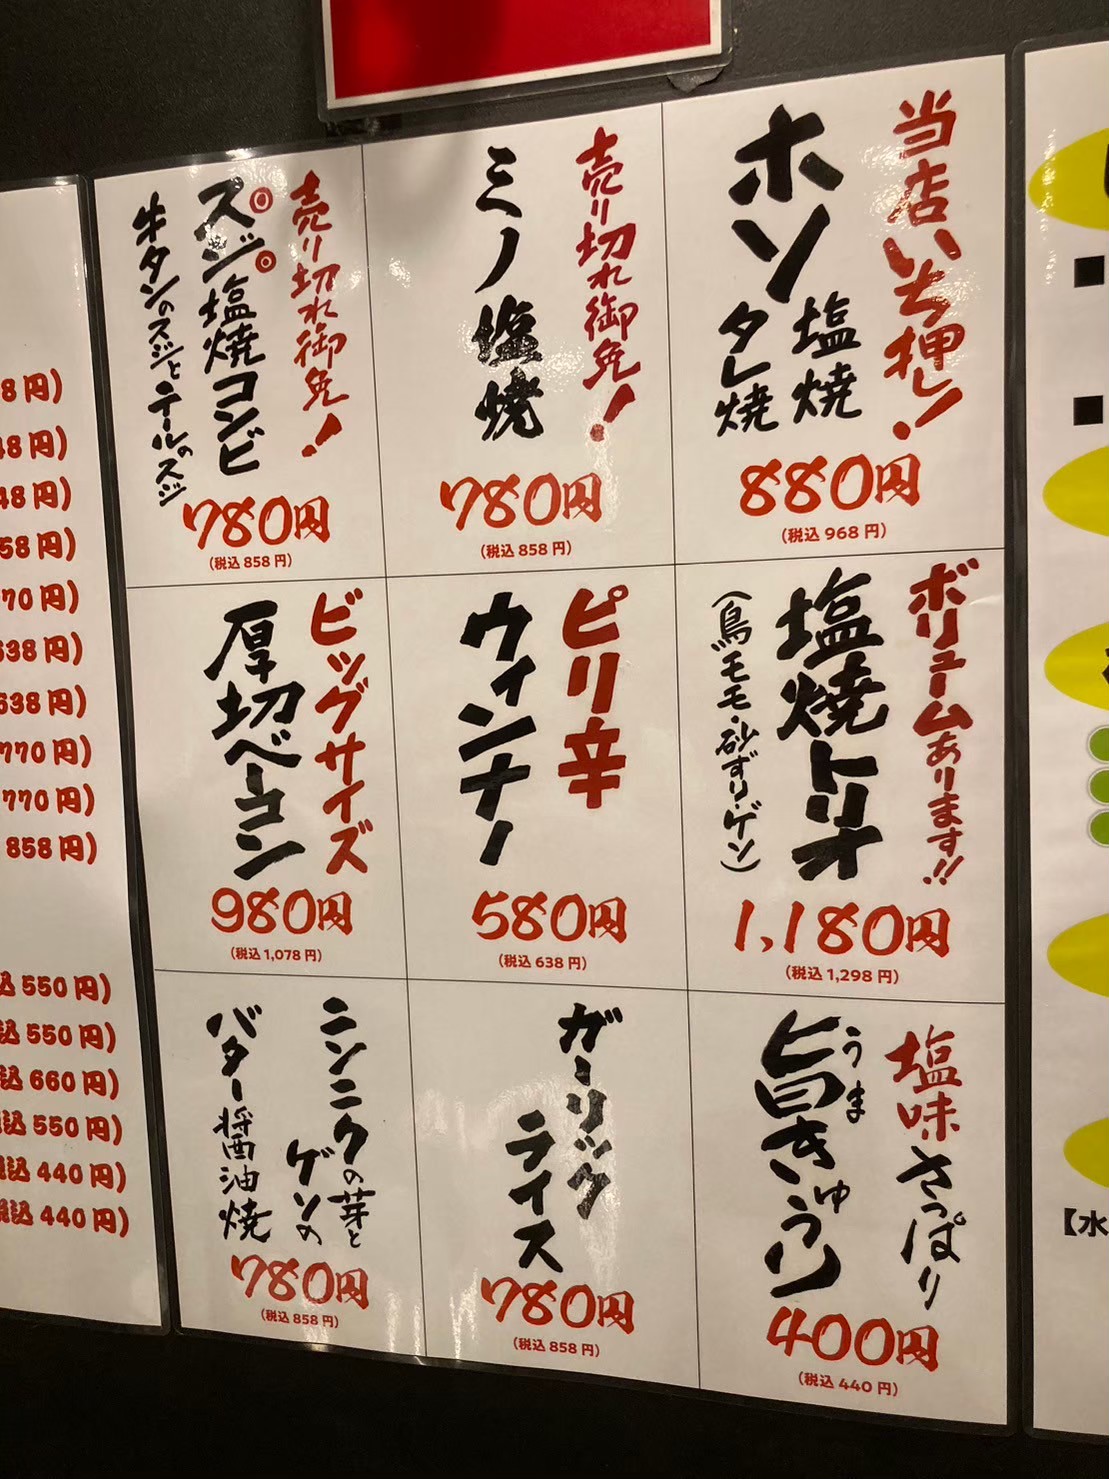 当店いち押し！
ホソ
塩焼
タレ焼
880円
(税込 968 円)
売り切れ御免！
ミノ塩焼
780円
(税込 858 円)
売り切れ御免！
スジ塩焼コンビ
牛タンのスジとテールのスジ
780円
(税込 858 円)
ボリュームあります!!
塩焼トリオ
(鳥モモ・砂ずり・ゲソ)
1,180円
(税込 1,298 円)
ピリ辛
ウィンナー
580円
(税込 638 円)
ビッグサイズ
厚切ベーコン
980円
(税込 1,078 円)
塩味さっぱり
旨きゅうり
うま
400円
(税込 440 円)
ガーリック
ライス
780円
(税込 858 円)
ニンニクの芽と
ゲソの
バター醤油焼
780円
(税込 858 円)
8 円)
48 円)
48 円)
58 円)
70 円)
638 円)
638 円)
770 円)
770 円)
858 円)
込 550 円)
込 550 円)
込 660 円)
込 550 円)
税込 440 円)
税込 440 円)
【水